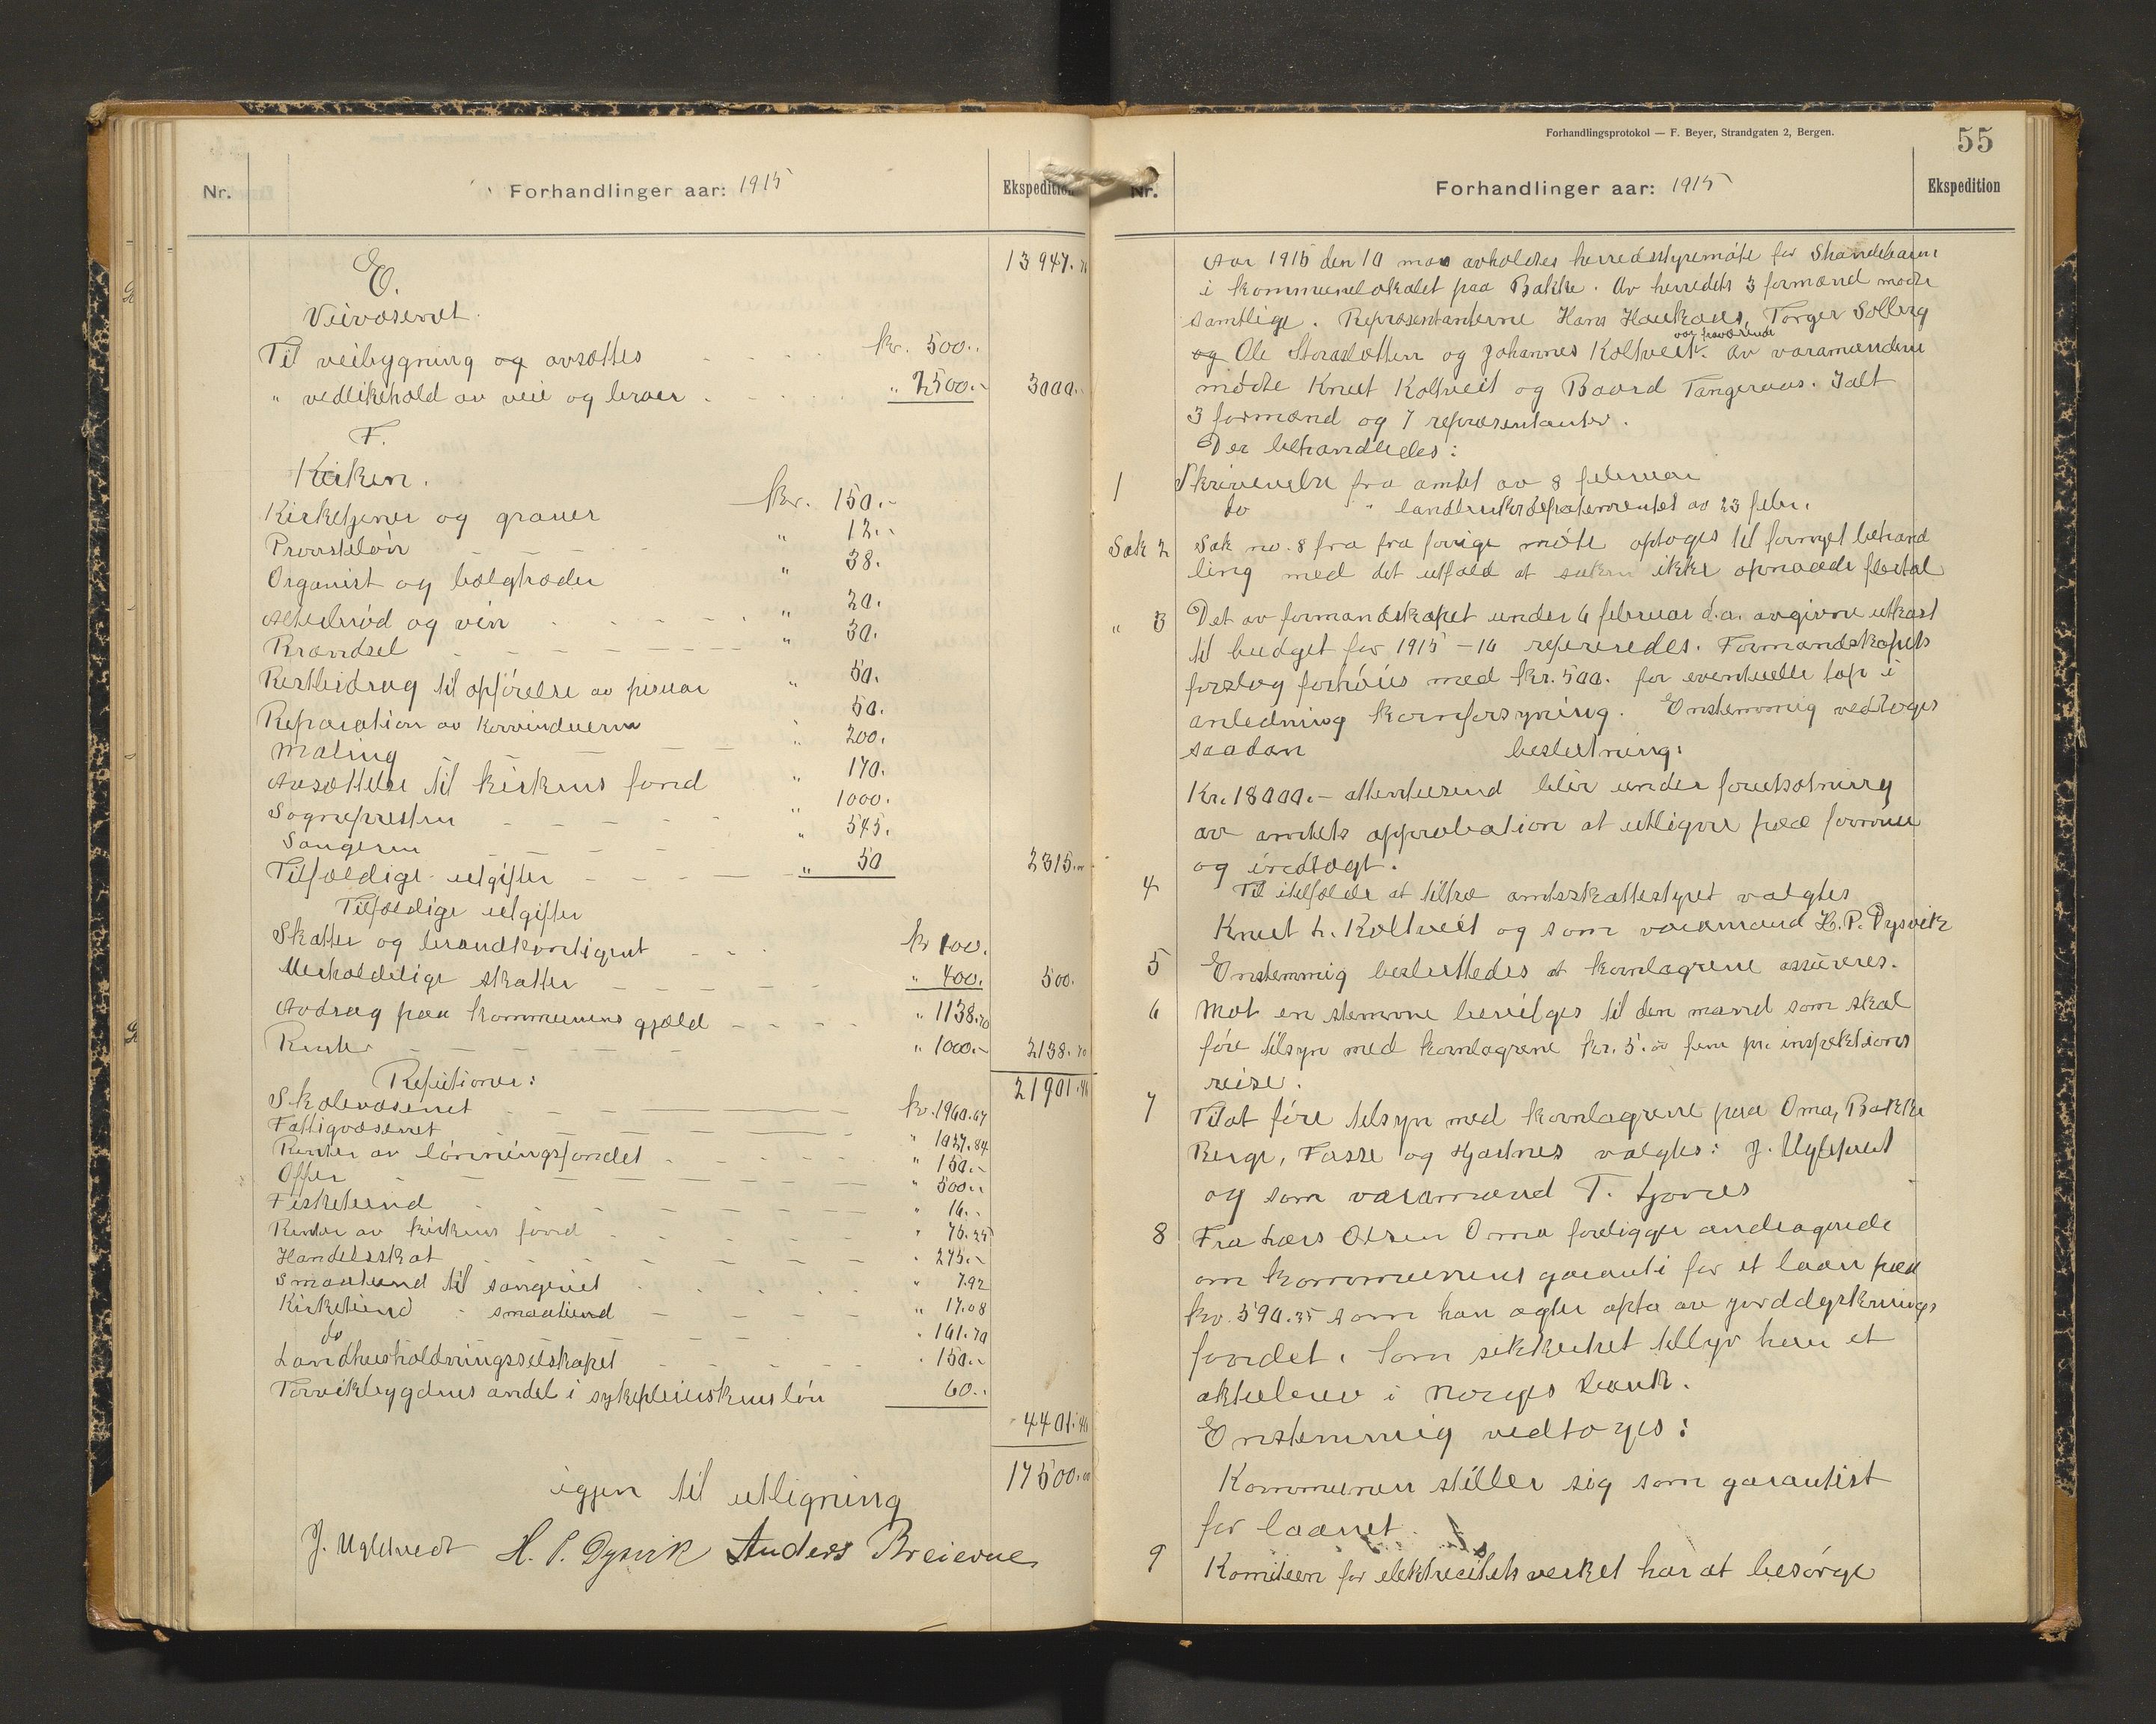 Nr.
Forhandlinger aar: 1915
Ekspedition
13947.76
E.
Veivæsenet.
Til veibygning og avsættes kr. 500..
" vedlikehold av veie og broer " 2500.- 3000.-
F.
Kirken.
Kirketjener og graver kr. 150.-
Provsteløn " 12.-
Organist og bælgtræder " 38.
Alterbrød og vin " 20.
Brændsel " 30.
Restbidrag til opførelse av pisuar " 50.
Reparation av korvinduerne " 50.
Maling " 200.
Avsættelse til kirkens fond " 170.
Sognepresten " 1000.
Sangeren " 545.
Tilfældige utgifter " 50 2315.00
Tilfældige utgifter
Skatter og brandkontigent kr 100.
Uerholdelige skatter " 400. 500.
Avdrag paa kommunens gjæld " 1138.70
Renter " 1000.- 2138.70
21901.46
Refutioner:
Skolevæsenet kr. 1960.67
Fattigvæsenet " 1037.84
Renter av lønningsfondet " 150.-
Offer " 500..
Fisketiend " 16.-
Renter av kirkens fond " 75.25
Handelsskat " 275.-
Smaatiend til sangeriet " 7.92
Kirketiend - smaatiend " 17.08
do " 161.70
Landhusholdningsselskapet " 150.-
Torvikbygdens andel i sykepleierskens løn 60..
4401.46
igjen til utligning 17500.00
J. Ugletvedt H. P. Dysvik Anders Breievne
Forhandlingsprotokol — F. Beyer, Strandgaten 2, Bergen.
55
Nr.
Forhandlinger aar: 1915
Ekspedition
Aar 1915 den 10 mars avholdtes herredsstyremøte for Strandebarm
i kommunelokalet paa Bakke. Av herredets 3 formænd møtte
samtlige. Repræsentanterne Hans Haukaas, Torger Solberg
og Ole Storaslætten og Johannes Koltveit var fraværende. Av varamændene
møtte Knut Koltveit og Baard Tangeraas. Ialt
3 formænd og 7 repræsentanter.
Der behandledes:
1 Skrivenelse fra amtet av 8 februar
do " landbruksdepatementet av 23 febr.
Sak 2 Sak no. 8 fra fra forrige møte optoges til fornyet behand
ling med det utfald at saken ikke opnaadde flertal
" 3 Det av formandskapet under 6 februar d.a. avgivne utkast
til budget for 1915-16 refereredes. Formandskapets
forslag forhøies med kr. 500. for eventuelle tap i
anledning kornforsyning. Enstemmig vedtoges
saadan beslutning:
Kr. 18000.- attentusend blir under forutsætning
av amtets approbation at utligne paa formue
og indtægt.
4 Til itilfælde at tiltræ amtsskattestyret valgtes
Knut L. Koltveit og som varamand H. P. Dysvik
5 Enstemmig besluttedes at kornlagrene assureres.
6 Mot en stemme bevilges til den mand som skal
føre tilsyn med kornlagrene kr. 5.00 fem pr. inspektions
reise.
7 Til at føre tilsyn med kornlagrene paa Oma, Bakke
Berge, Fosse og Hjartnes valgtes: J. Ugletvedt
og som varamand T. Tjones
8 Fra Lars Olsen Oma foreligger andragende
om kommunens garanti for et laan paa
kr. 590.35 som han agter opta av jorddyrknings
fondet. Som sikkerhet tilbyr han et
aktiebrev i Norges bank.
Enstemmig vedtoges:
Kommunen stiller sig som garantist
for laanet.
9 Komiteen for elektricitetsverket har at besørge